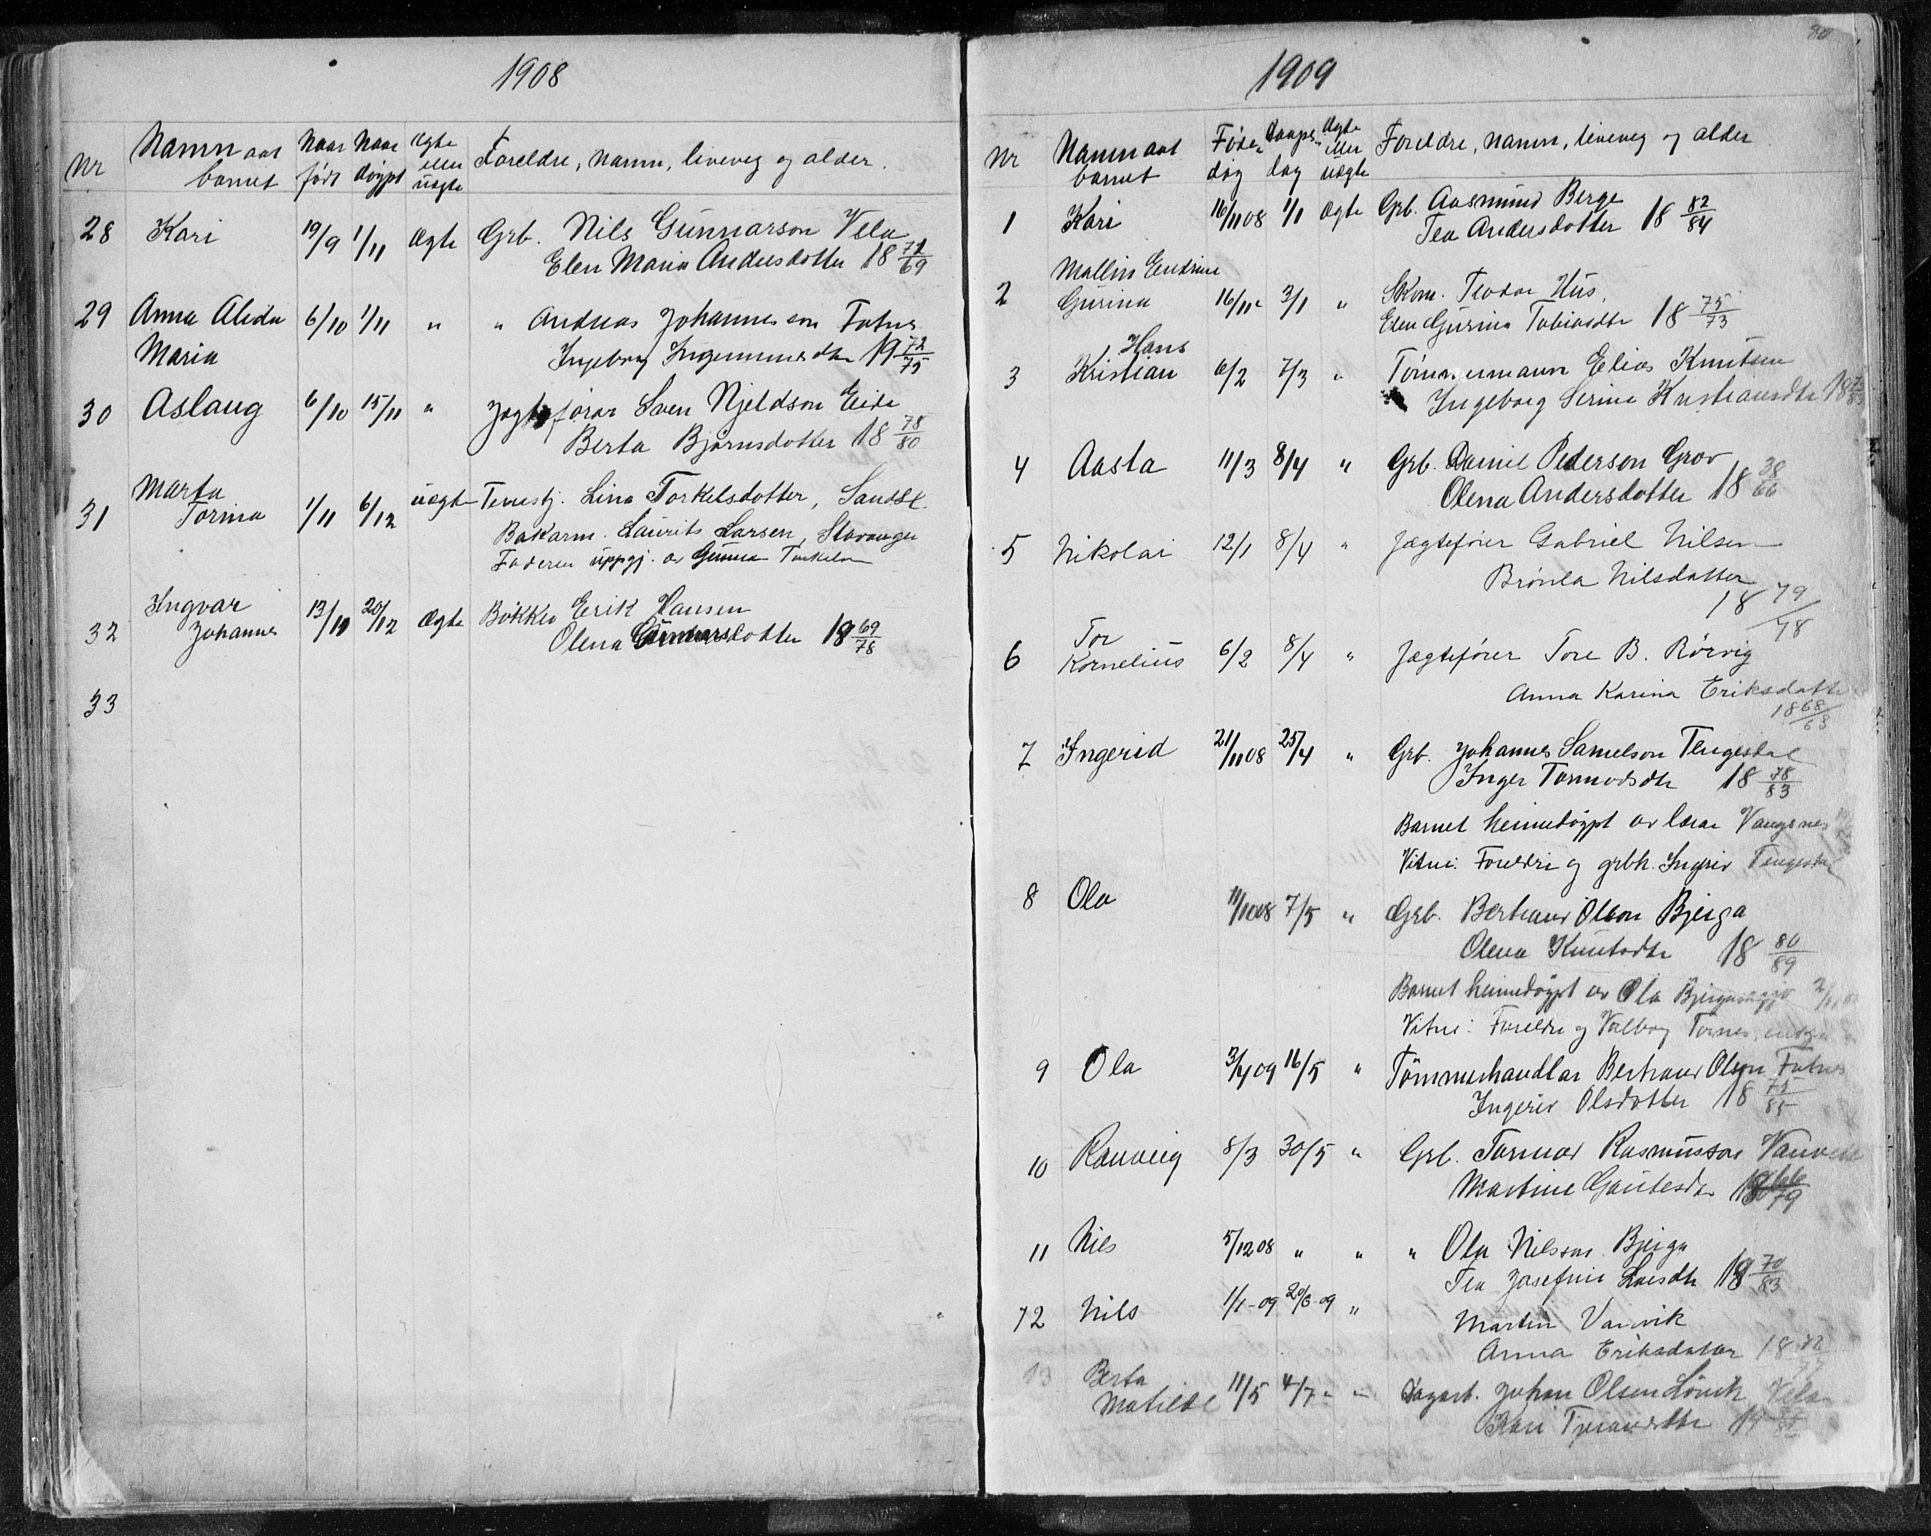 1908
Nr
Namn aat
barnet
Naar
født
Naar
døypt
Ægte
eller
uægte
Foreldre, namn, liveveg og alder.
28 Kari 19/9 1/11 Ægte Grb. Nils Gunnarson Vela
Elen Maria Andersdotter 18 71/69
29 Anna Alida 6/10 1/11 " " Andreas Johannesson
Maria Ingeborg 72/75
30 Aslaug 6/10 15/11 " Jægteførar Sven Njeldson Eide
Berta Bjørnsdotter 18 78/80
Marta
31 Torina 1/11 6/12 uægte Tenestj. Lina Torkelsdotter,
Bakarm. Laurits Larsen, Stavanger
Faderen uppgj. av
Ingvar
32 Johannes 20/12 Ægte Erik Hansen
Olena 18 69/78
33
1909
80
Nr
Namn aat
barnet
Føde-
dag
Daaps-
dag
Ægte
eller
uægte
Foreldre, namn, liveveg og alder
1 Kari 16/11 08 1/1 Ægte Grb. Aasmund Berge
Tea Andersdotter 18 82/84
2 Gurina 16/11 3/1 " Skom. Teodor Hus.
Elen Gurina Tobiasdtr 18 75/73
Hans
3 Kristian 6/2 7/3 " Tømmermann Elias Knutsen
Ingeborg Serine Kristiansdtr
4 Aasta 11/3 8/4 " Grb. Daniel Pederson Grov
Olena Andersdotter 18 38/66
5 Nikolai 12/1 8/4 " Jægtefører Gabriel Nilsen
Brønla Nilsdatter
18 79/78
Tor
6 Kornelius 6/2 8/4 " Jægtefører Tore B. Rørvig
Anna Karina Eriksdatter
1868/63
7 Ingerid 21/11 08 25/4 " Grb. Johannes Samelson Tengesdal
Inger Tormodsdtr 18 78/83
Barnet heimedøypt av lærar Vangsnes
Vitni: Foreldri og grbk. Ingrid Tengesdal
8 Ola 11/10 08 7/5 " Grb. Bertran Olson Bjerga
Olena Knutsdtr 18 80/89
Barnet heimedøypt av Ola
Vitni: Foreldri og Valborg
9 Ola 09 16/5 " Tømmerhandlar Bertran Olson
Ingerid Olsdotter 18 75/85
10 Ranveig 8/3 30/5 " Grb. Tormod Rasmusson
Martine Gautesdtr
11 Nils 5/12 08 " " " Ola Nilsson Bjerga
Tea Josefine Larsdtr 18 70/83
12 Nils 1/1-09 20/6-09 " Martin Vanvik
Anna Eriksdatter 18
13 Berta
Matilde 11/5 4/7 " Dagarb. Johan Olsen
Kari